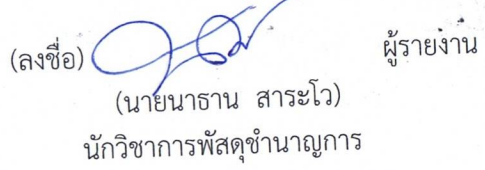 (ลงชื่อ) ผู้รายงาน
(นายนาธาน สาระโว)
นักวิชาการพัสดุชำนาญการ